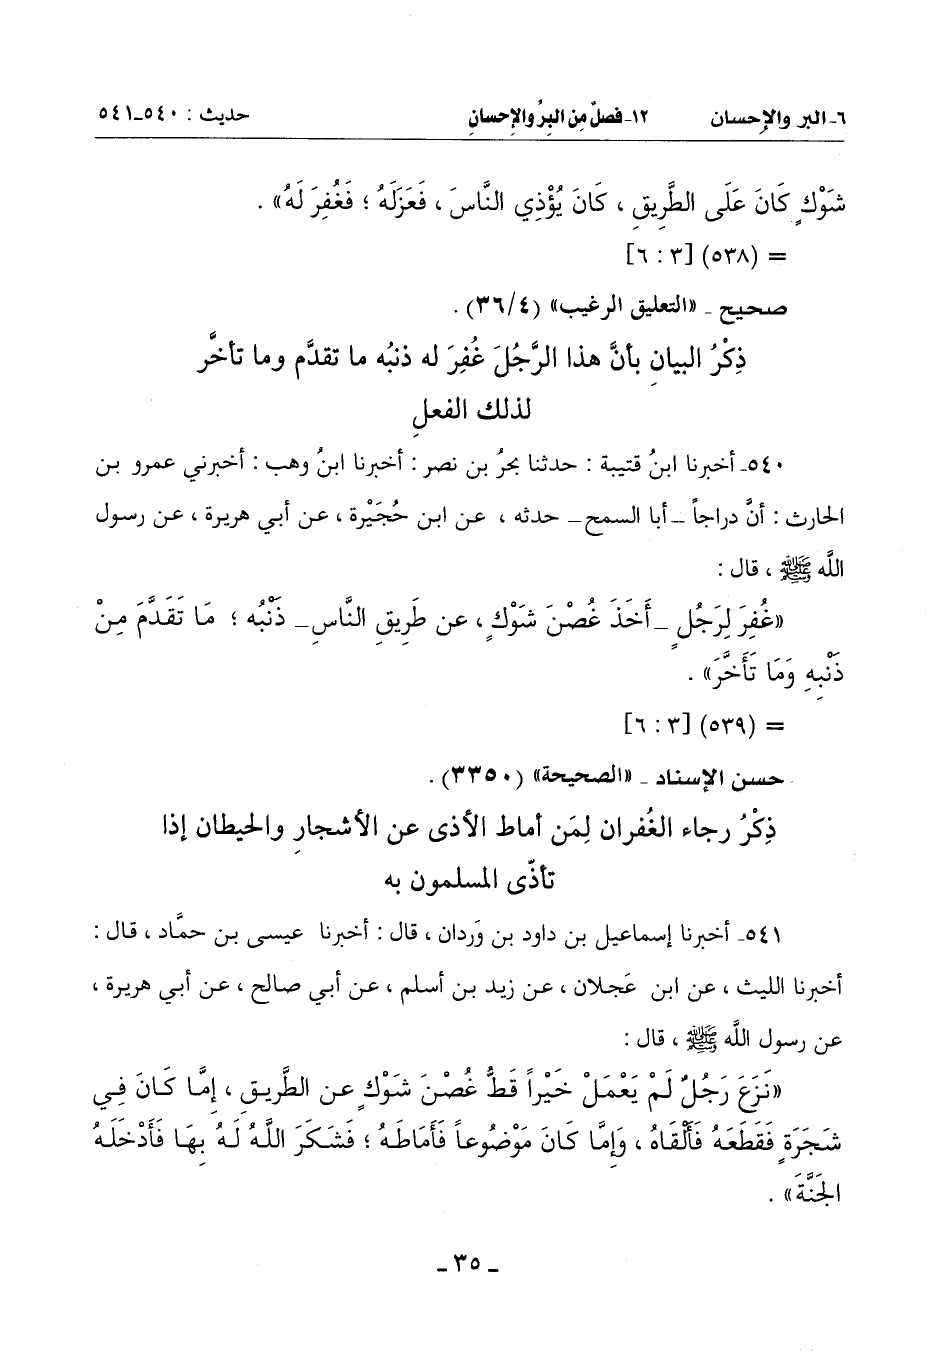 ٦- البر والإحسان ١٢- فصلٌ مِن البِرِّ والإحسانِ حديث : ٥٤٠-٥٤١
شَوْكٍ كَانَ عَلَى الطَّرِيقِ ، كَانَ يُؤْذِي النَّاسَ ، فَعَزَلَهُ ؛ فَغُفِرَ لَهُ» .
= (٥٣٨) [٣ : ٦]
صحيح - «التعليق الرغيب» (٤/٣٦) .
ذِكْرُ البيانِ بأنَّ هذا الرَّجُلَ غُفِرَ له ذنبُه ما تقدَّم وما تأخَّر
لذلك الفعلِ
٥٤٠- أخبرنا ابنُ قتيبة : حدثنا بحرُ بن نصر : أخبرنا ابنُ وهب : أخبرني عمرو بن
الحارث : أنَّ دراجاً -أبا السمح- حدثه ، عن ابن حُجَيْرة ، عن أبي هريرة ، عن رسول
اللَّه ﷺ ، قال :
«غُفِرَ لِرَجُلٍ -أَخَذَ غُصْنَ شَوْكٍ ، عن طَرِيقِ النَّاسِ- ذَنْبُه ؛ مَا تَقَدَّمَ مِنْ
ذَنْبِهِ وَمَا تَأَخَّرَ» .
= (٥٣٩) [٣ : ٦]
حسن الإسناد - «الصحيحة» (٣٣٥٠) .
ذِكْرُ رجاء الغُفران لِمَن أماط الأذى عن الأشجارِ والحيطان إذا
تأذّى المسلمون به
٥٤١- أخبرنا إسماعيل بن داود بن وَردان ، قال : أخبرنا عيسى بن حمَّاد ، قال :
أخبرنا الليث ، عن ابن عَجلان ، عن زيد بن أسلم ، عن أبي صالح ، عن أبي هريرة ،
عن رسول اللَّه ﷺ ، قال :
«نَزَعَ رَجُلٌ لَمْ يَعْمَلْ خَيْراً قَطُّ غُصْنَ شَوْكٍ عن الطَّرِيقِ ، إِمَّا كَانَ فِي
شَجَرَةٍ فَقَطَعَهُ فَأَلْقَاهُ ، وَإِمَّا كَانَ مَوْضُوعاً فَأَمَاطَهُ ؛ فَشَكَرَ اللَّهُ لَهُ بِهَا فَأَدْخَلَهُ
الجَنَّةَ» .
- ٣٥ -